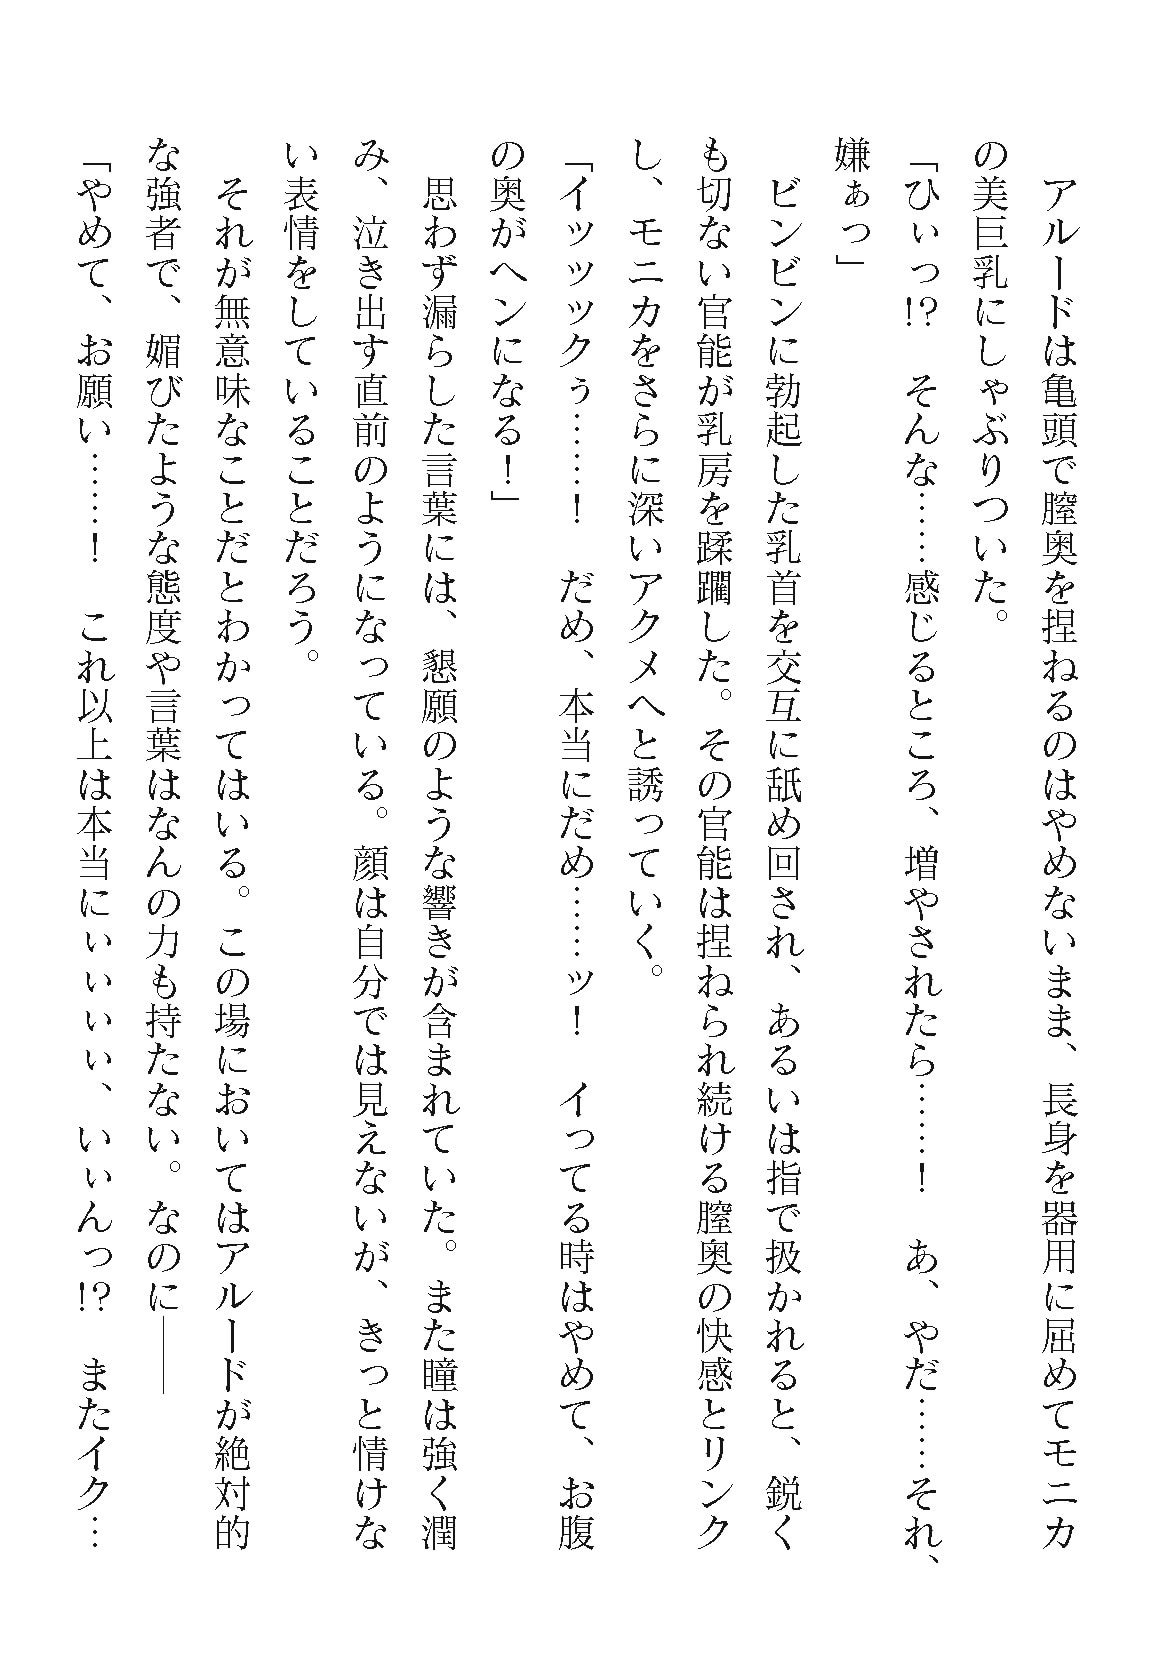 アルードは亀頭で膣奥を捏ねるのはやめないまま、長身を器用に屈めてモニカ
の美巨乳にしゃぶりついた。
「ひぃっ!?　そんな……感じるところ、増やされたら……！　あ、やだ……それ、
嫌ぁっ」
ビンビンに勃起した乳首を交互に舐め回され、あるいは指で扱かれると、鋭く
も切ない官能が乳房を蹂躙した。その官能は捏ねられ続ける膣奥の快感とリンク
し、モニカをさらに深いアクメへと誘っていく。
「イッッックぅ……！　だめ、本当にだめ……ッ！　イってる時はやめて、お腹
の奥がヘンになる！」
思わず漏らした言葉には、懇願のような響きが含まれていた。また瞳は強く潤
み、泣き出す直前のようになっている。顔は自分では見えないが、きっと情けな
い表情をしていることだろう。
それが無意味なことだとわかってはいる。この場においてはアルードが絶対的
な強者で、媚びたような態度や言葉はなんの力も持たない。なのに――
「やめて、お願い……！　これ以上は本当にぃぃぃぃ、いぃんっ!?　またイク…